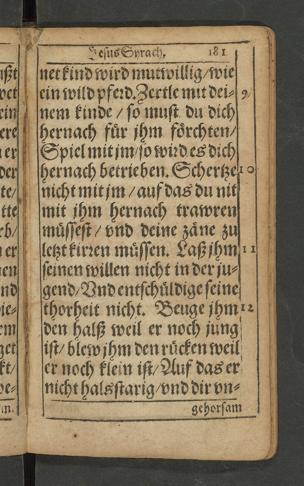 Jesus Syrach. 181
net kind wird mutwillig/wie
ein wild pferd. Zertle mit dei- 9
nem kinde / so must du dich
hernach für jhm förchten/
Spiel mit jm/so wird es dich
hernach betrüben. Schertze 10
nicht mit jm / auf das du nit
mit jhm hernach trawren
müssest / vnd deine zäne zu
letzt kirren müssen. Laß jhm 11
seinen willen nicht in der ju-
gend/Vnd entschüldige seine
thorheit nicht. Beuge jhm 12
den halß weil er noch jung
ist/ blew jhm den rücken weil
er noch klein ist/ Auf das er
nicht halsstarig/vnd dir vn-
gehorsam